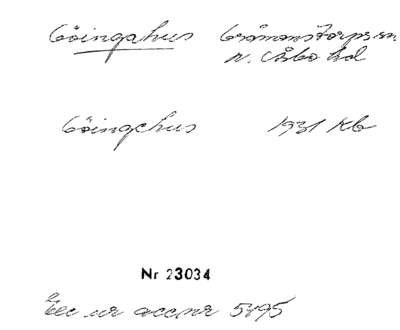 Göingahus Gråmanstorps sn
n. Åsbo hd
Göingehus 1931 Kb
Nr 23034
Exc ur acc nr 5495